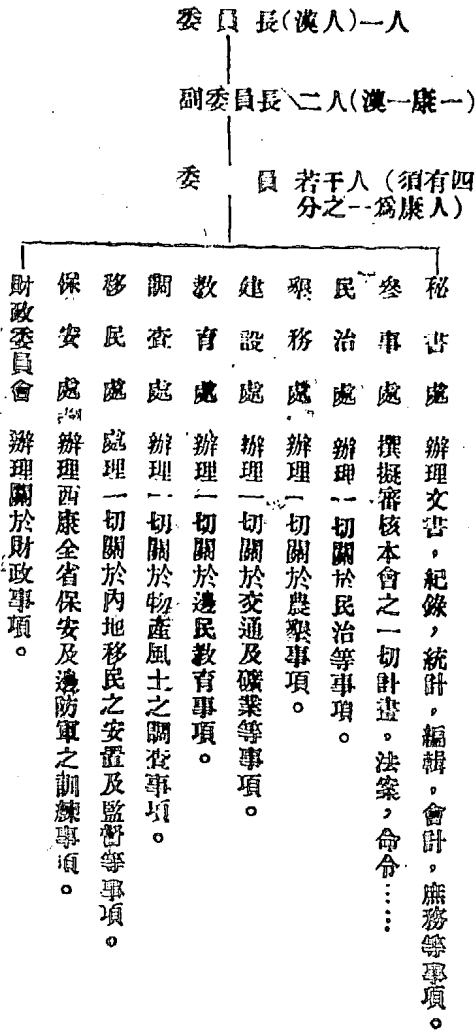 委員長(漢人)一人
副委員長、二人(漢一康一)
委員 若干人（須有四
分之一爲康人)
秘書處 辦理文書，紀錄，統計，編輯，會計，庶務等事項。
參事處 撰擬審核本會之一切計畫，法案，命令……
民治處 辦理一切關於民治等事項。
墾務處 辦理一切關於農墾事項。
建設處 辦理一切關於交通及礦業等事項。
教育處 辦理一切關於邊民教育事項。
調查處 辦理一切關於物產風土之調查事項。
移民處 處理一切關於內地移民之安置及監督等事項。
保安處 辦理西康全省保安及邊防軍之訓練事項。
財政委員會 辦理關於財政事項。